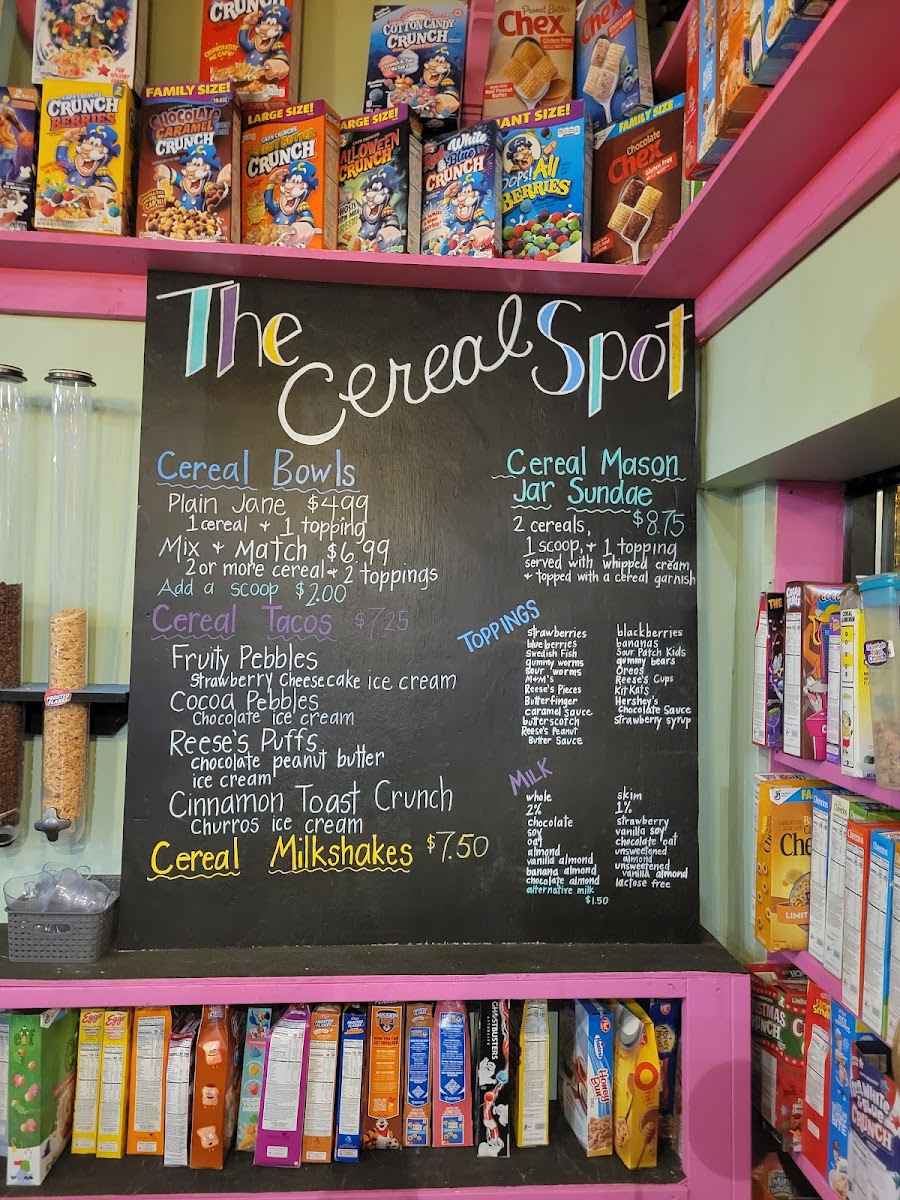 CRUNCH
COTTON CANDY
CRUNCH
Peanut Butter
Chex
Gluten Free
Chex
CRUNCH
BERRIES
FAMILY SIZE!
CHOCOLATE
CARAMEL
CRUNCH
LARGE SIZE!
CRUNCH
LARGE SIZE!
HALLOWEEN
CRUNCH
White
Blue
CRUNCH
GIANT SIZE!
OOPS! All
BERRIES
FAMILY SIZE
Chocolate
Chex
Gluten Free
The
Cereal Spot
Cereal Bowls
Plain Jane $4.99
1 cereal + 1 topping
Mix + Match $6.99
2 or more cereal + 2 toppings
Add a scoop $2.00
Cereal Tacos $7.25
Fruity Pebbles
Strawberry Cheesecake ice cream
Cocoa Pebbles
Chocolate ice cream
Reese's Puffs
chocolate peanut butter
ice cream
Cinnamon Toast Crunch
Churros ice cream
Cereal Milkshakes $7.50
Cereal Mason
Jar Sundae
$8.75
2 cereals,
1 scoop, + 1 topping
served with whipped cream
+ topped with a cereal garnish
TOPPINGS
strawberries
blueberries
Swedish Fish
gummy worms
sour worms
M+M's
Reese's Pieces
Butterfinger
caramel sauce
butterscotch
Reese's Peanut
Butter Sauce
blackberries
bananas
Sour Patch Kids
gummy bears
Oreos
Reese's Cups
Kit Kats
Hershey's
Chocolate Sauce
strawberry syrup
MILK
whole
2%
chocolate
soy
oat
almond
vanilla almond
banana almond
chocolate almond
alternative milk
$1.50
skim
1%
strawberry
vanilla soy
chocolate oat
unsweetened
almond
unsweetened
vanilla almond
lactose free
FROSTED
FLAKES
Cheerios
LIMIT
CRUNCH
White
Blue
CRUNCH
Eggo
Eggo
MISSION
GHOSTBUSTERS
Honey